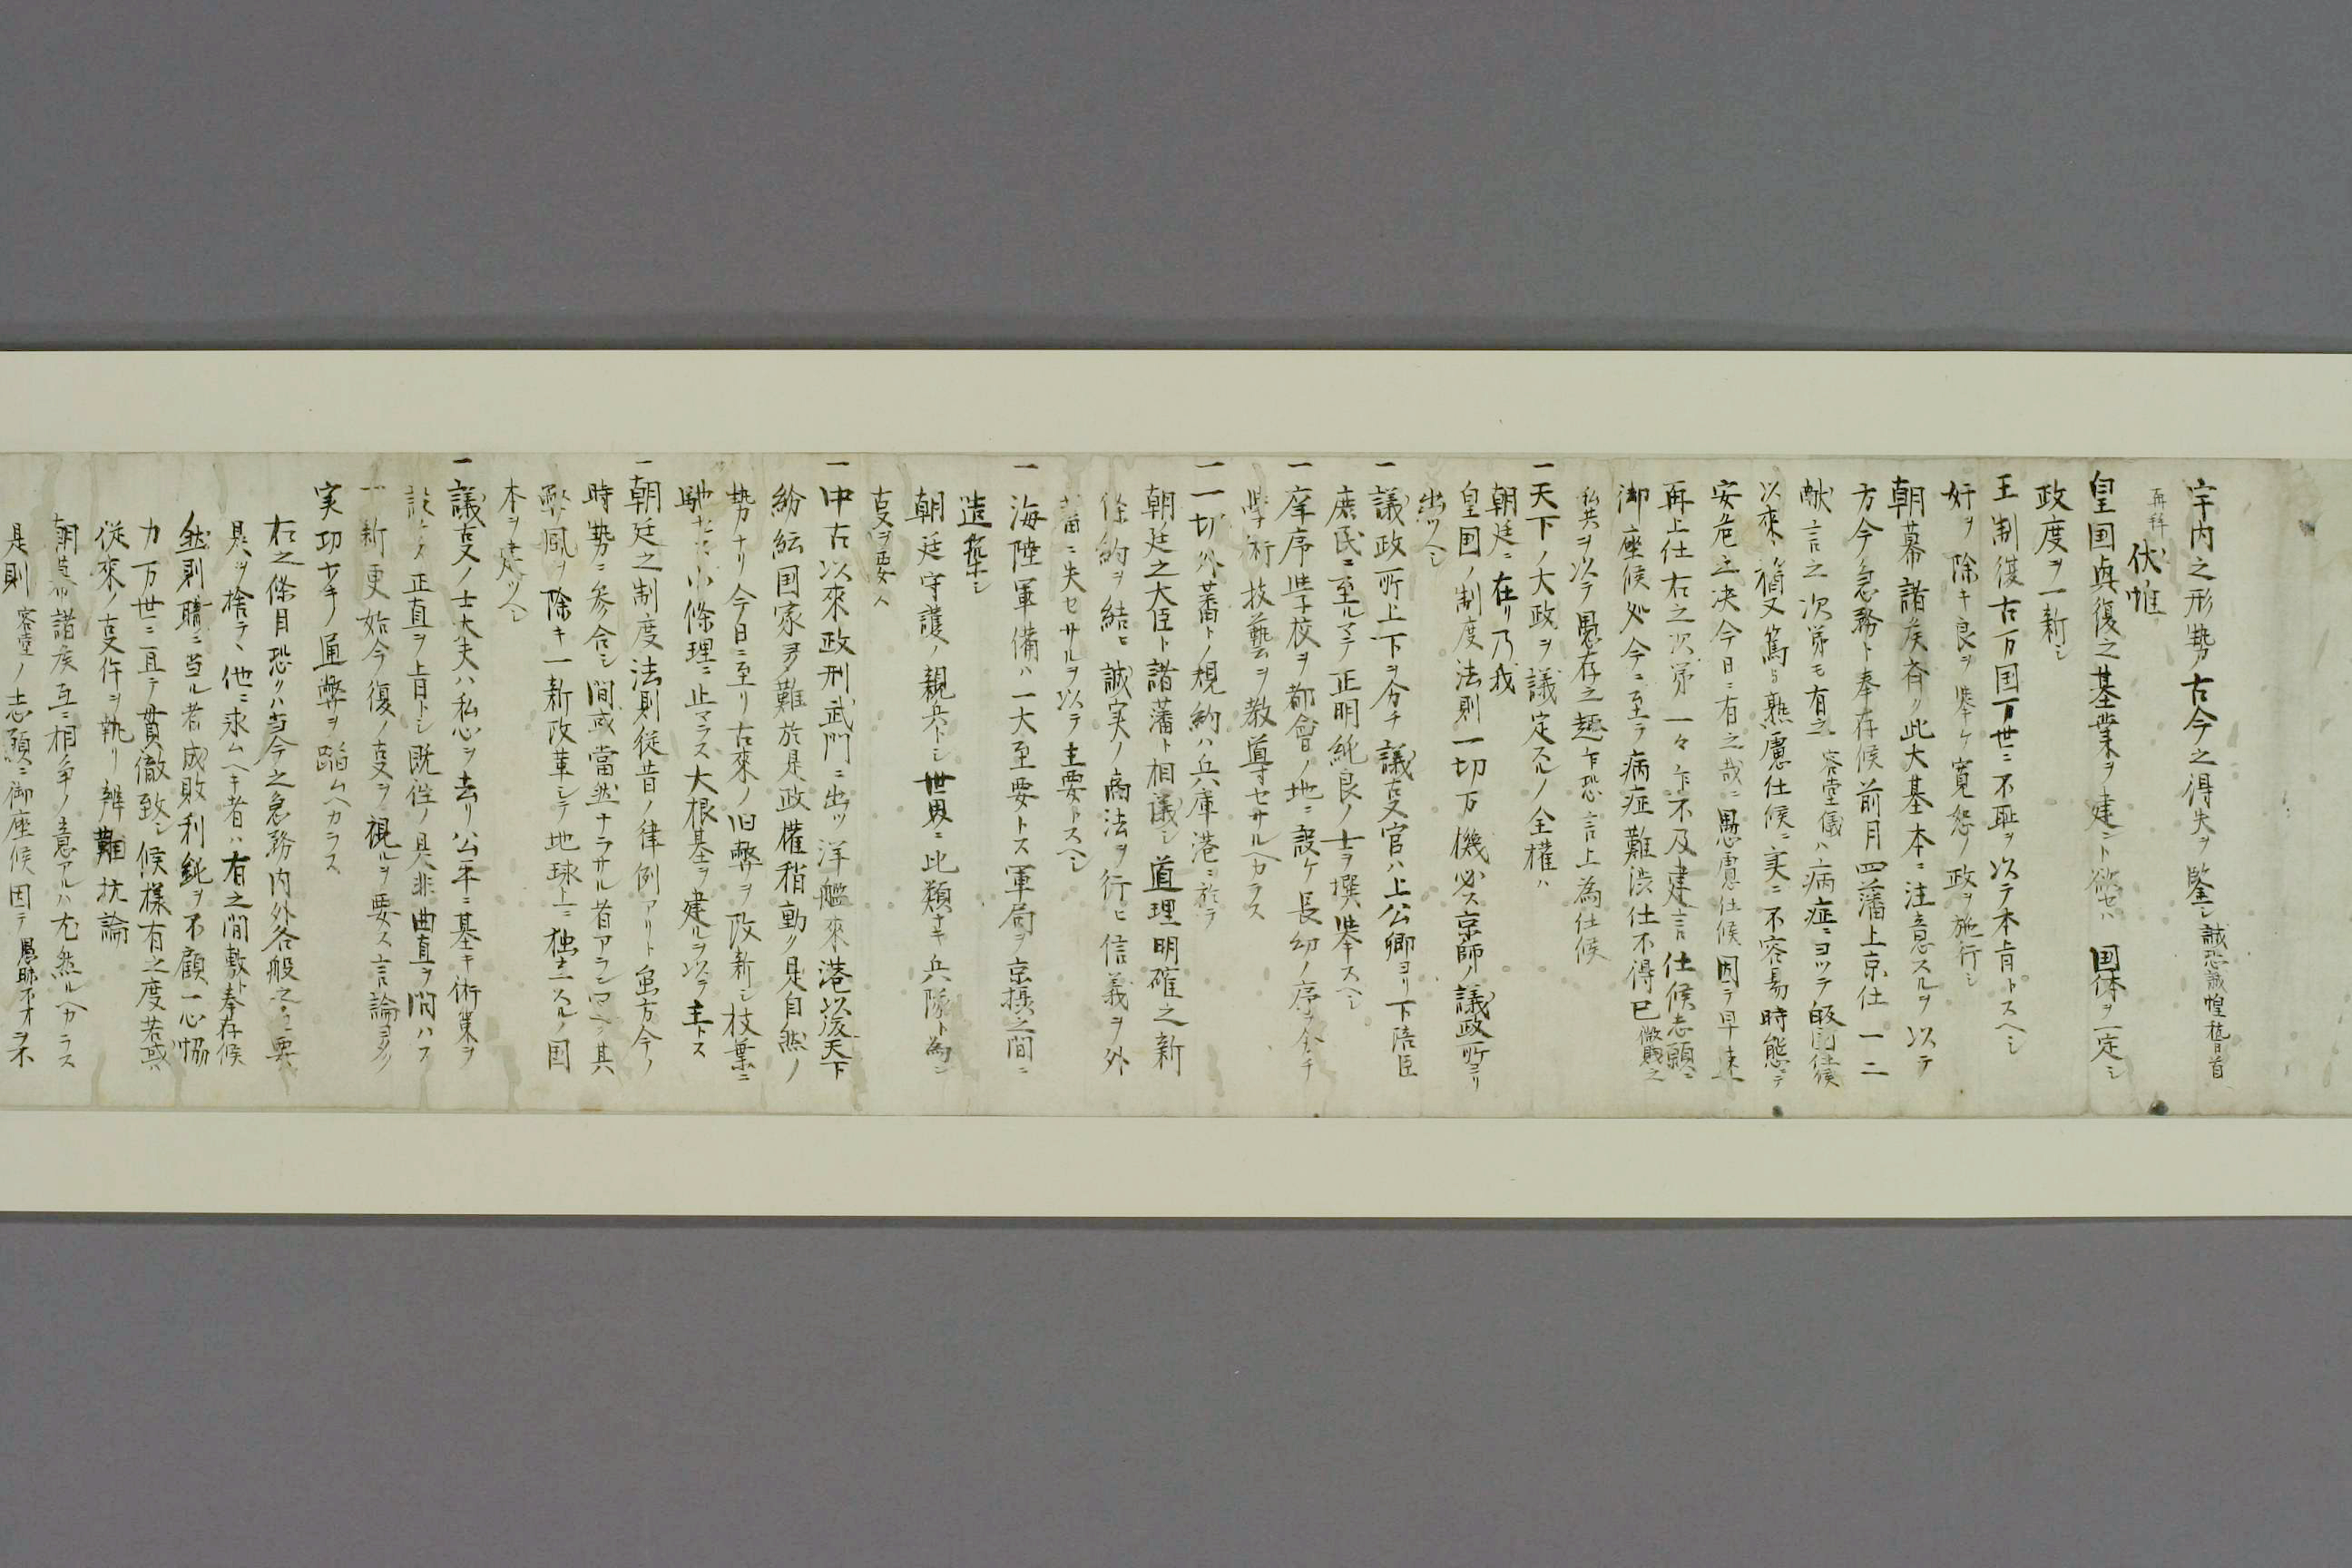 宇内之形勢古今之得失ヲ鑒シ誠恐誠惶稽首
再拝伏惟
皇国興復之基業ヲ建ント欲セハ国体ヲ一定シ
政度ヲ一新シ
王制復古万国万世ニ不恥ヲ以テ本旨トスヘシ
奸ヲ除キ良ヲ挙ケ寛恕ノ政ヲ施行シ
朝幕諸侯斉ク此大基本ニ注意スルヲ以テ
方今ノ急務ト奉存候前月四藩上京仕一二
献言之次第モ有之容堂儀ハ病症ニヨツテ帰国仕候
以来猶又篤ト熟慮仕候ニ実ニ不容易時態ニテ
安危之决今日ニ有之哉ニ愚慮仕候因テ早速
再上仕右之次第一々乍不及建言仕候志願ニ
御座候処今ニ至テ病症難渋仕不得已微賤之
私共ヲ以テ愚存之趣乍恐言上為仕候
一天下ノ大政ヲ議定スルノ全権ハ
朝廷ニ在リ乃我
皇国ノ制度法則一切万機必ス京師ノ議政所ヨリ
出ツヘシ
一議政所上下ヲ分チ議事官ハ上公卿ヨリ下陪臣
庶民ニ至ルマテ正明純良ノ士ヲ撰挙スヘシ
一庠序学校ヲ都會ノ地ニ設ケ長幼ノ序ヲ分チ
学術技藝ヲ教導セサルヘカラス
一一切外蕃トノ規約ハ兵庫港ニ於テ
朝廷之大臣ト諸藩ト相議シ道理明確之新
條約ヲ結ヒ誠実ノ商法ヲ行ヒ信義ヲ外
蕃ニ失セサルヲ以テ主要トスヘシ
一海陸軍備ハ一大至要トス軍局ヲ京摂之間ニ
造築シ
朝廷守護ノ親兵トシ世界ニ比類ナキ兵隊ト為ン
事ヲ要ス
一中古以来政刑武門ニ出ツ洋艦来港以後天下
紛紜国家多難於是政權稍動ク是自然ノ
勢ナリ今日ニ至リ古来ノ旧弊ヲ改新シ枝葉ニ
馳セス小條理ニ止マラス大根基ヲ建ルヲ以テ主トス
一朝廷之制度法則従昔ノ律例アリト虽方今ノ
時勢ニ参合シ間或當然ナラサル者アラン其
弊風ヲ除キ一新改革シテ地球上ニ独立スルノ国
本ヲ建ツヘシ
一議事ノ士大夫ハ私心ヲ去リ公平ニ基キ術策ヲ
設ケス正直ヲ旨トシ既往ノ是非曲直ヲ問ハス
一新更始今後ノ事ヲ視ルヲ要ス言論多ク
実功少キノ通弊ヲ蹈ムヘカラス
右之條目恐クハ当今之急務内外各般之至要
是ヲ捨テ他ニ求ムヘキ者ハ有之間敷ト奉存候
然則職ニ当ル者成敗利鈍ヲ不顧一心協
力万世ニ亘テ貫徹致シ候様有之度若或ハ
従来ノ事件ヲ執リ辨難抗論
朝幕諸侯互ニ相争ノ意アルハ尤然ルヘカラス
是則容堂ノ志願ニ御座候因テ愚昧不才ヲ不